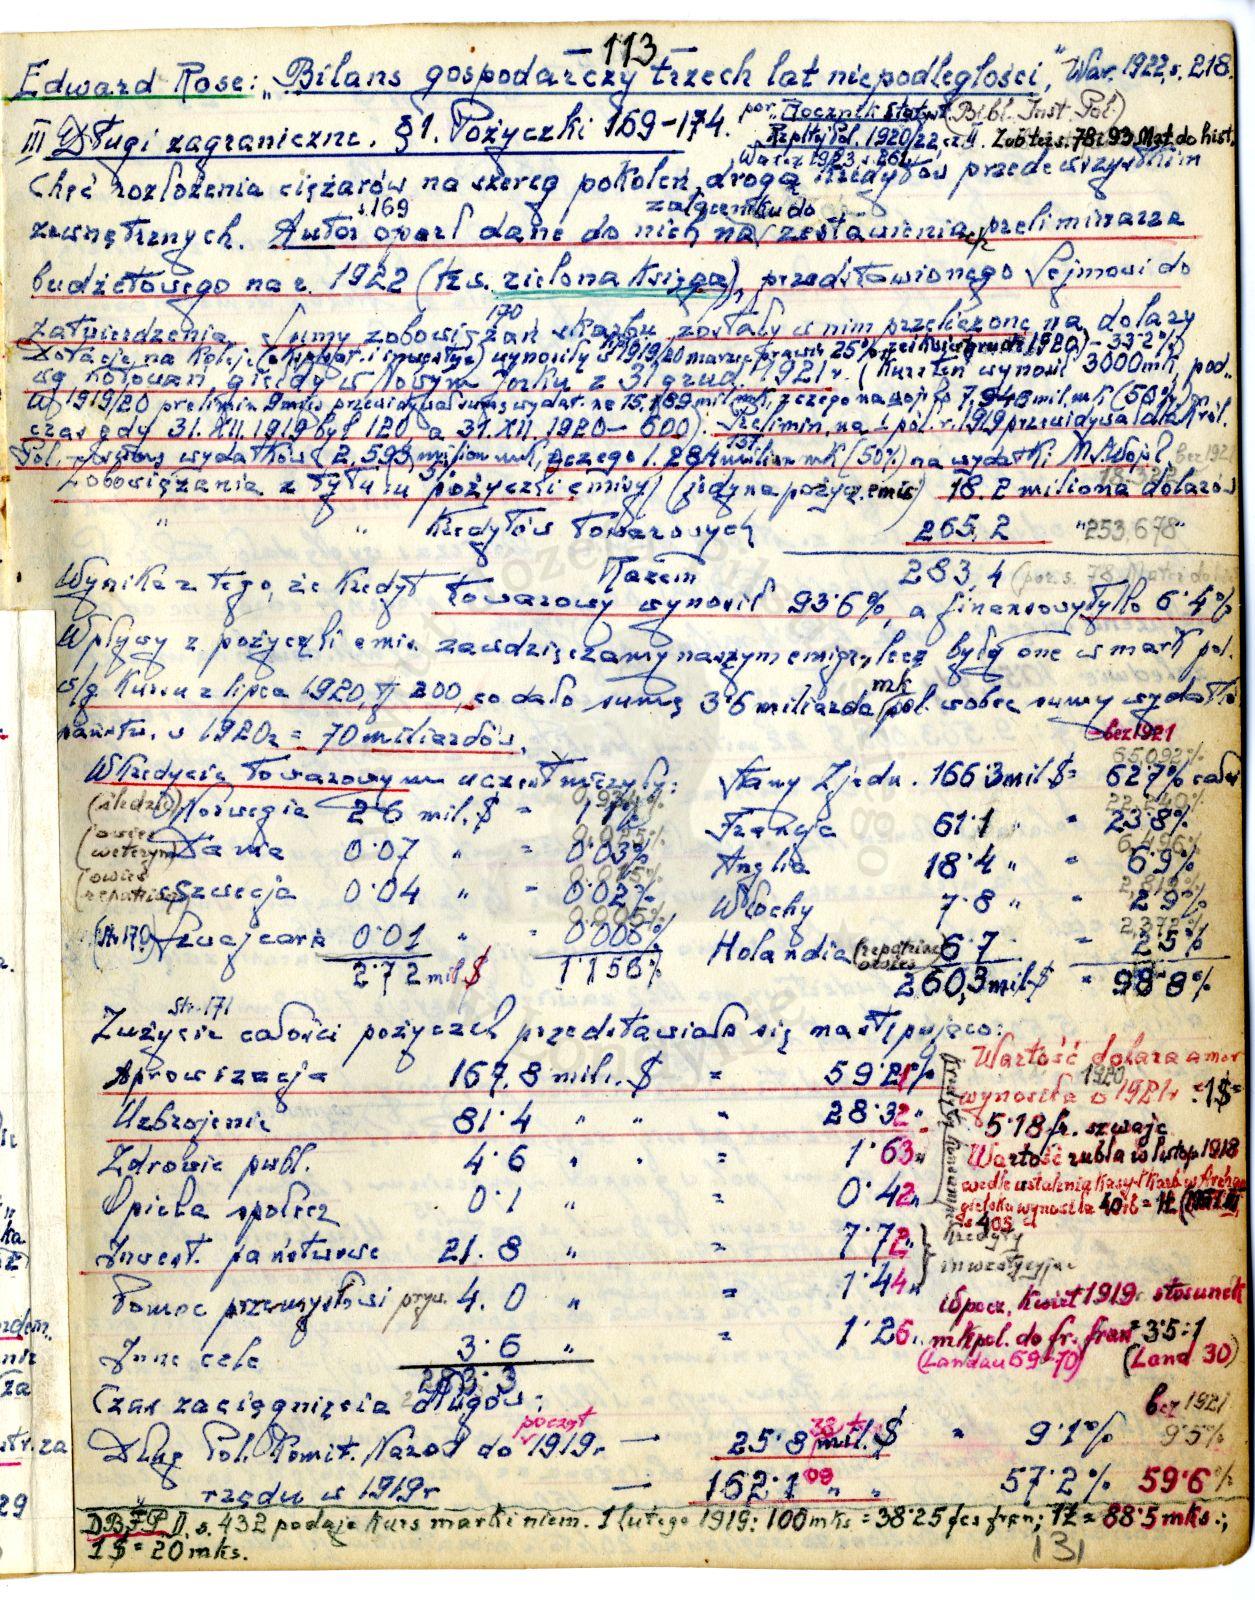 - 113 -
Edward Rose: "Bilans gospodarczy trzech lat niepodległości," War. 1922, s. 218.
III Długi zagraniczne. § 1. Pożyczki 169-174. por. Rocznik Statyst. (Bibl. Inst. Pol.)
Rzplitej Pol. 1920/22 cz. II. Zob. też s. 78 i 93 Mat. do hist.
Chęć rozłożenia ciężarów na szereg pokoleń drogą kredytów przedewszystkim
s. 169 załączniku do
zewnętrznych. Autor oparł dane do nich na zestawieniach preliminarza
budżetowego na r. 1922 (tzw. zielona księga), przedstawionego Sejmowi do
170
zatwierdzenia. Sumy zobowiązań skarbu zostały w nim przeliczone na dolary
Dotacje na koleje (eksploat. i inwestycje) wynosiły w 1919/20
wg notowań giełdy w Nowym Jorku z 31 grud. 1921 r. (Kurs ten wynosił 3000 mk, pod..
W 1919/20 prelimin. 9 mies. przewidywał sumę wydat. na 15.189 mil. mk, z czego na wojsko 7.943 mil. mk (50%)
czas gdy 31. XII. 1919 był 120 a 31. XII 1920 - 600). Prelimin. na 1 pół. r. 1919 przewidywał dla Król.
Pol. sumę wydatków 2,593 milion mk, z czego 1.284 milion mk (50%) na wydatki M. Wojsk bez 1921
Zobowiązania z tytułu pożyczki emisyj (jedyna pożycz. emis) 18.2 miliona dolarów 18.322
" " kredytów towarowych 265,2 " 253,678 "
Razem 283,4 (por. s. 78
Wynika z tego, że kredyt towarowy wynosił 93·6%, a finansowy tylko 6·4%
Wpływy z pożyczki emis. zawdzięczamy naszym emigr., lecz były one w mark pol.
w/g kursu z lipca 1920, tj 200, co dało sumę 3·6 miliarda mk pol. wobec sumy wydatków
państw. w 1920 r = 70 miliardów.
bez 1921
W kredycie towarowym uczestniczyły: Stany Zjedn. 166·3 mil $ = 62·7% całości 65,092%
(śledzie) Norwegia 2·6 mil. $ = 1·1% Francja 61·1 " = 23·8%
(owies weteryn) Dania 0·07 " = 0·03% Anglia 18·4 " = 6·9%
(owies repatriac) Szwecja 0·04 " = 0·02% Włochy 7·8 " = 2·9%
(str. 170) Szwajcaria 0·01 " = 0·006% Holandia (repatriac) 6·7 = 2·5% 2,372%
2·72 mil $ 1·156% 260,3 mil $ = 98·8%
Str. 171
Zużycie całości pożyczek przedstawiało się następująco:
Aprowizacja 167,8 mili. $ = 59·21%
Uzbrojenie 81·4 " " = 28·32 "
Zdrowie publ. 4·6 " " = 1·63 "
Opieka społecz 0·1 " = 0·42 "
Inwest. państwowe 21.8 " = 7·72 "
Pomoc przemysłowi pryw. 4.0 " = 1·44 "
Inne cele 3·6 " = 1·26 "
283·3
kredyty konsumpc
kredyty inwestycyjne
Wartość dolara amer
1920
wynosiła w 1921 r : 1$ =
5·18 fr. szwajc
Wartość rubla w listop 1918
wedle ustalenia Kasy Skarb w Archan
gielsku wynosiła 40 rb = 1£
s 405
W pocz. kwiet 1919 stosunek
mk pol. do fr. fran = 3·5:1
(Landau 69-70) (Land 30)
Czas zaciągnięcia długów: bez 1921
Dług Pol. Komit. Narod do począt 1919 r — 25·8 mil. $ " 9·1% 9·5%
" rządu w 1919 r — 162·1 " " 57·2% 59·6%
DBFP II. s. 432 podaje kurs marki niem. 1 lutego 1919: 100 mks = 38·25 fcs fran; 1£ = 88·5 mks.;
1$ = 20 mks.
131